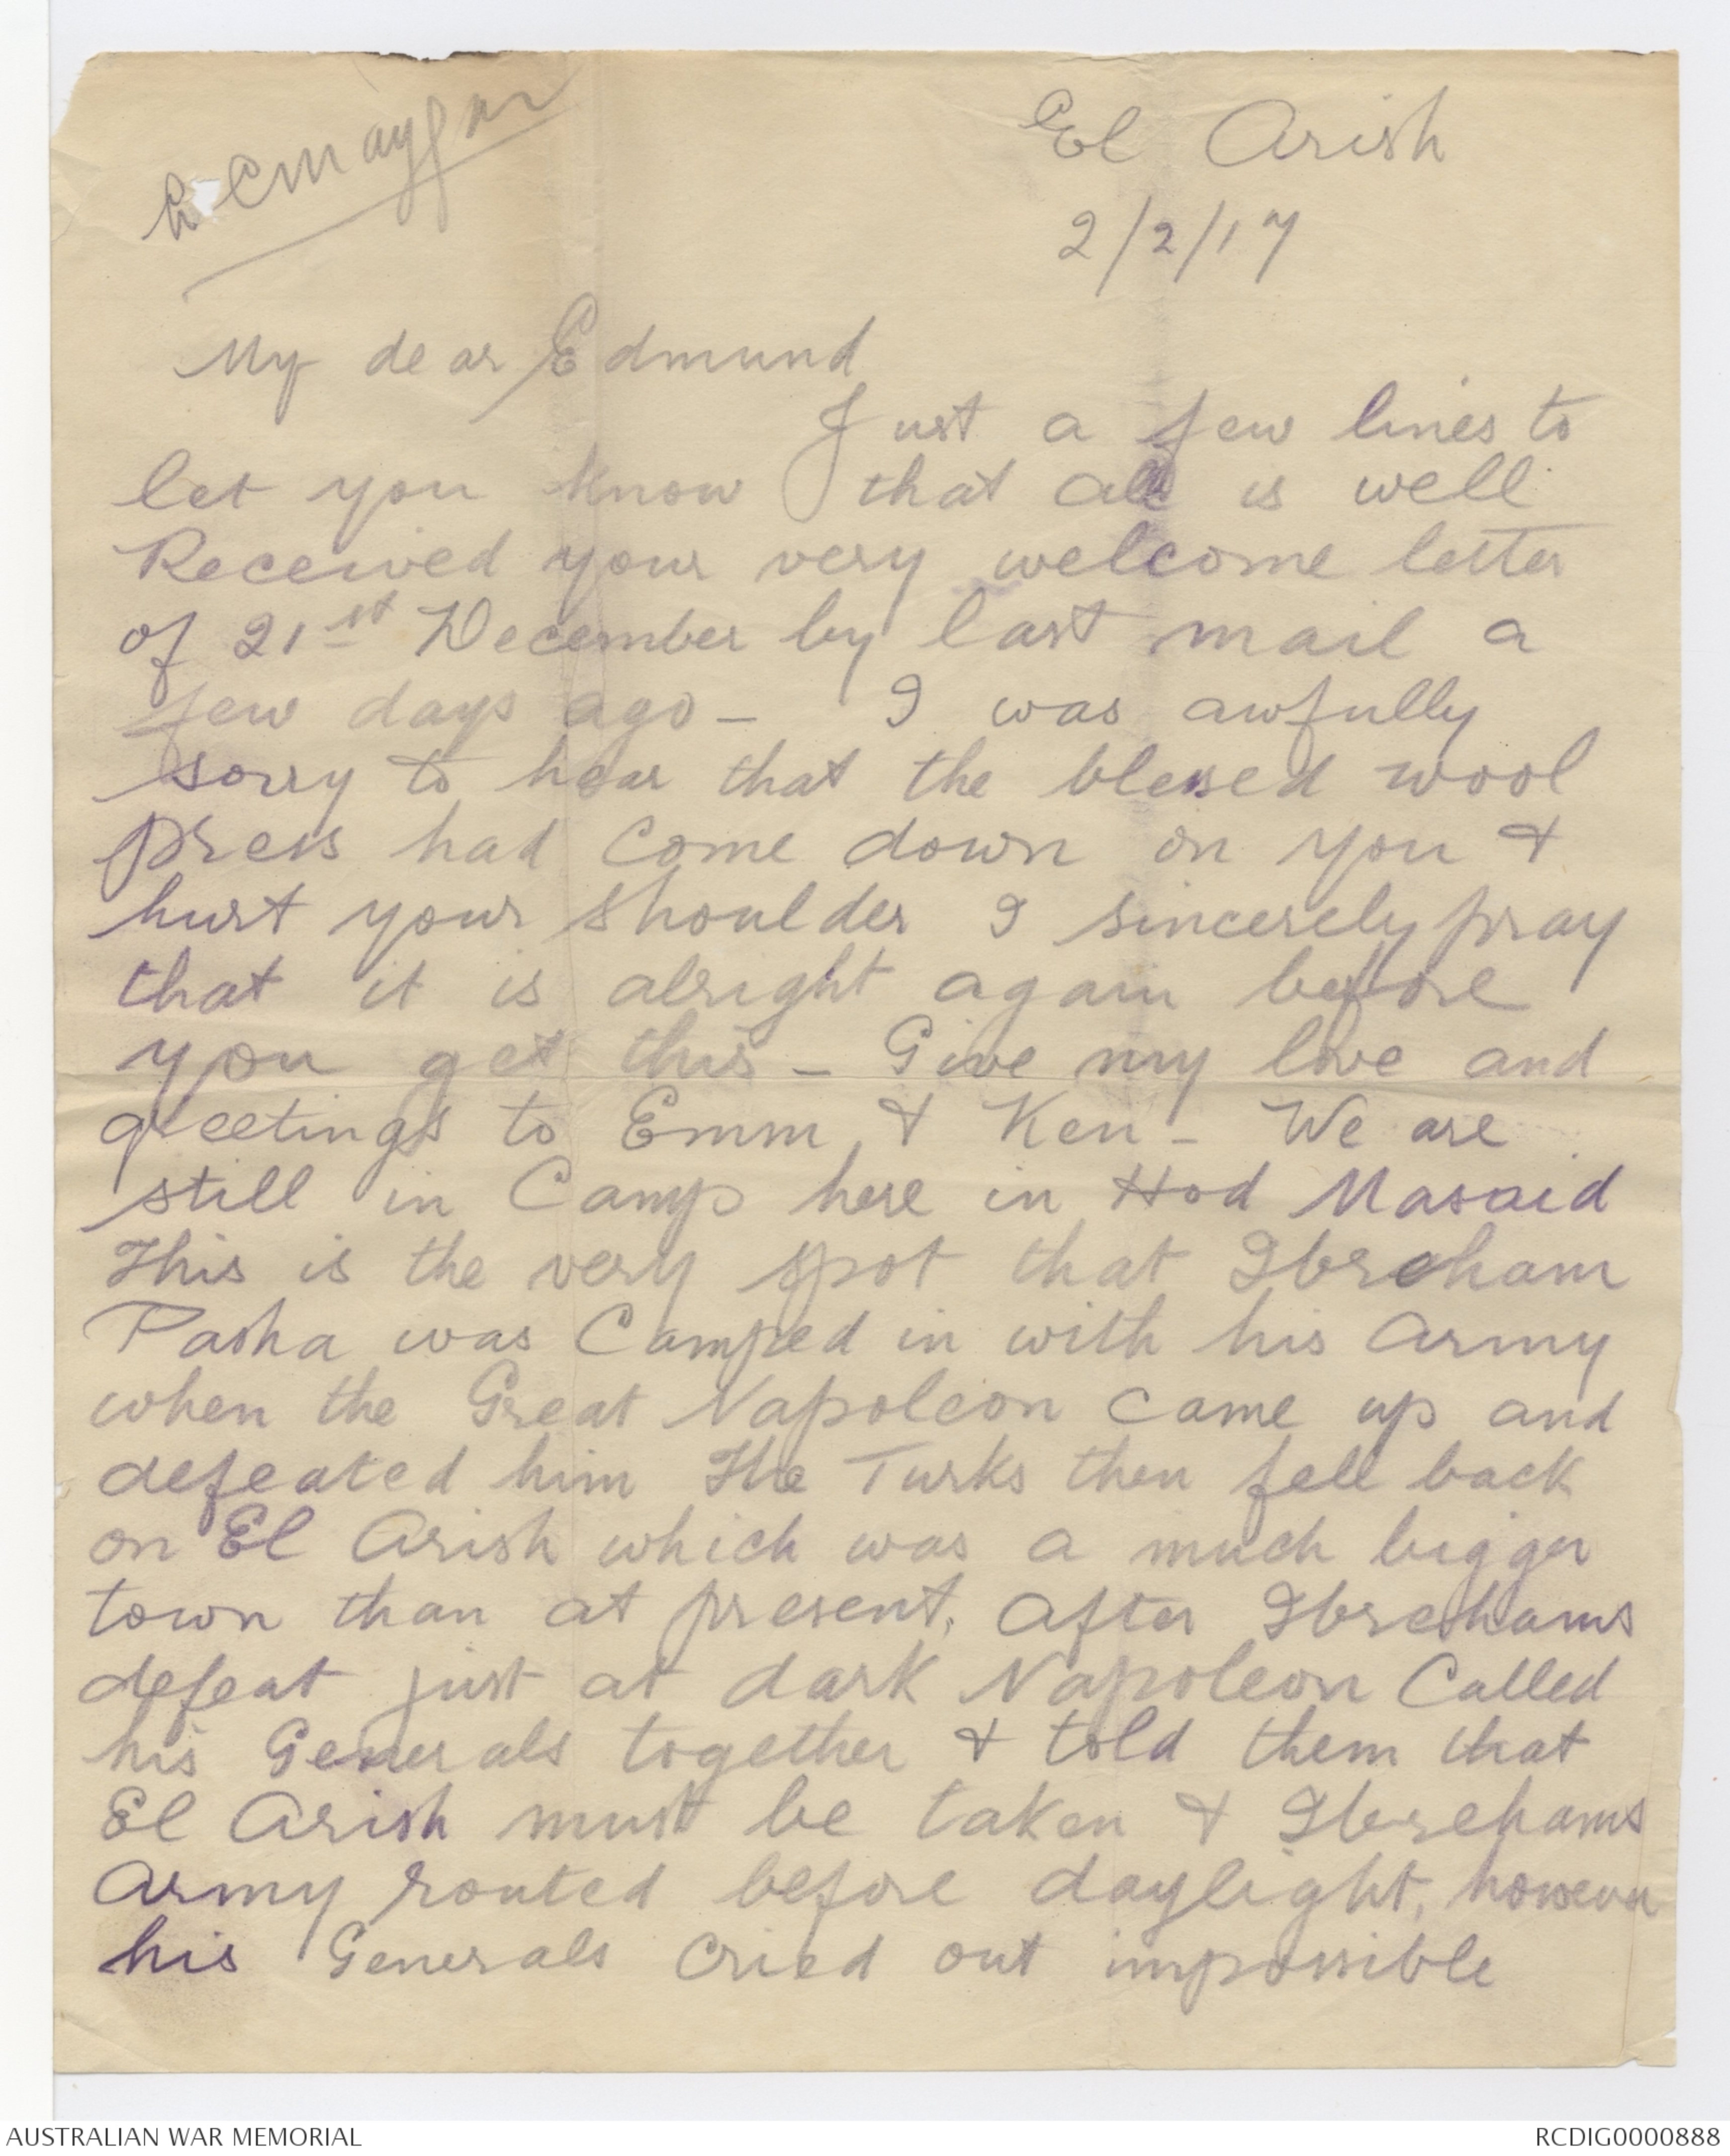 El Arish
2/2/17
My dear Edmund
Just a few lines to
let you know that all is well
Received your very welcome letter
of 21st December by last mail a
few days ago - I was awfully
sorry to hear that the blessed wool
press had come down on you &
hurt your shoulder I sincerely pray
that it is alright again before
you get this - Give my love and
greetings to Emm & Ken - We are
still in Camp here in Hod Masaid
This is the very spot that Ibreham
Pasha was Camped in with his army
when the Great Napoleon came up and
defeated him The Turks then fell back
on El Arish which was a much bigger
town than at present. After Ibrehams
defeat just at dark Napoleon Called
his Generals together & told them that
El Arish must be taken & Ibrehams
Army routed before daylight, however
his Generals cried out impossible
AUSTRALIAN WAR MEMORIAL
RCDIG0000888